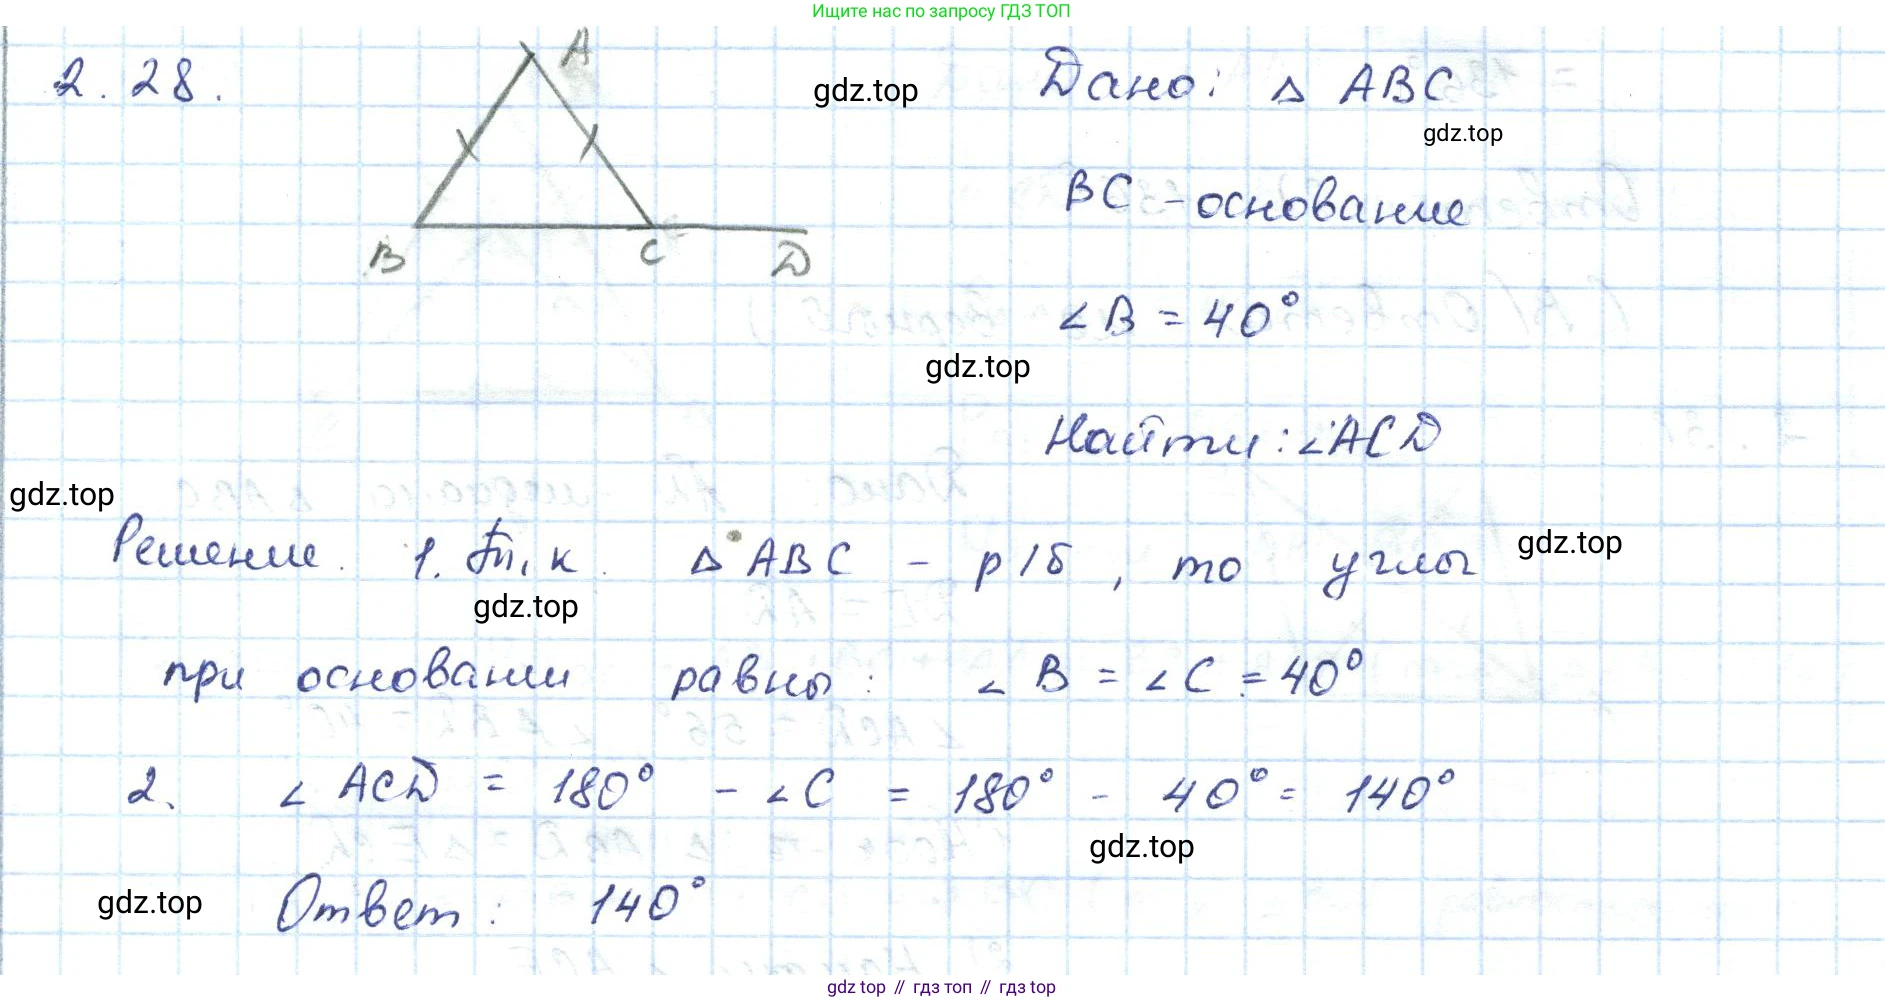 Ищите нас по запросу ГДЗ ТОП
2.28.
A
B
C
D
Дано: △ ABC
BC - основание
∠B = 40°
Найти: ∠ACD
Решение. 1. Т.к. △ ABC - р/б, то углы
при основании равны: ∠B = ∠C = 40°
2. ∠ACD = 180° - ∠C = 180° - 40° = 140°
Ответ: 140°
gdz.top
gdz.top
gdz.top
gdz.top
gdz.top
gdz.top
gdz.top
gdz.top
gdz top // гдз топ // гдз top